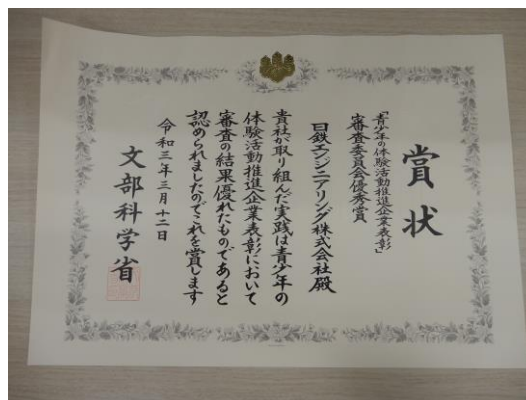 賞状
「青少年の体験活動推進企業表彰」
審査委員会優秀賞
日鉄エンジニアリング株式会社殿
貴社が取り組んだ実践は青少年の
体験活動推進企業表彰において
審査の結果優れたものであると
認められましたのでこれを賞します
令和三年三月十二日
文部科学省